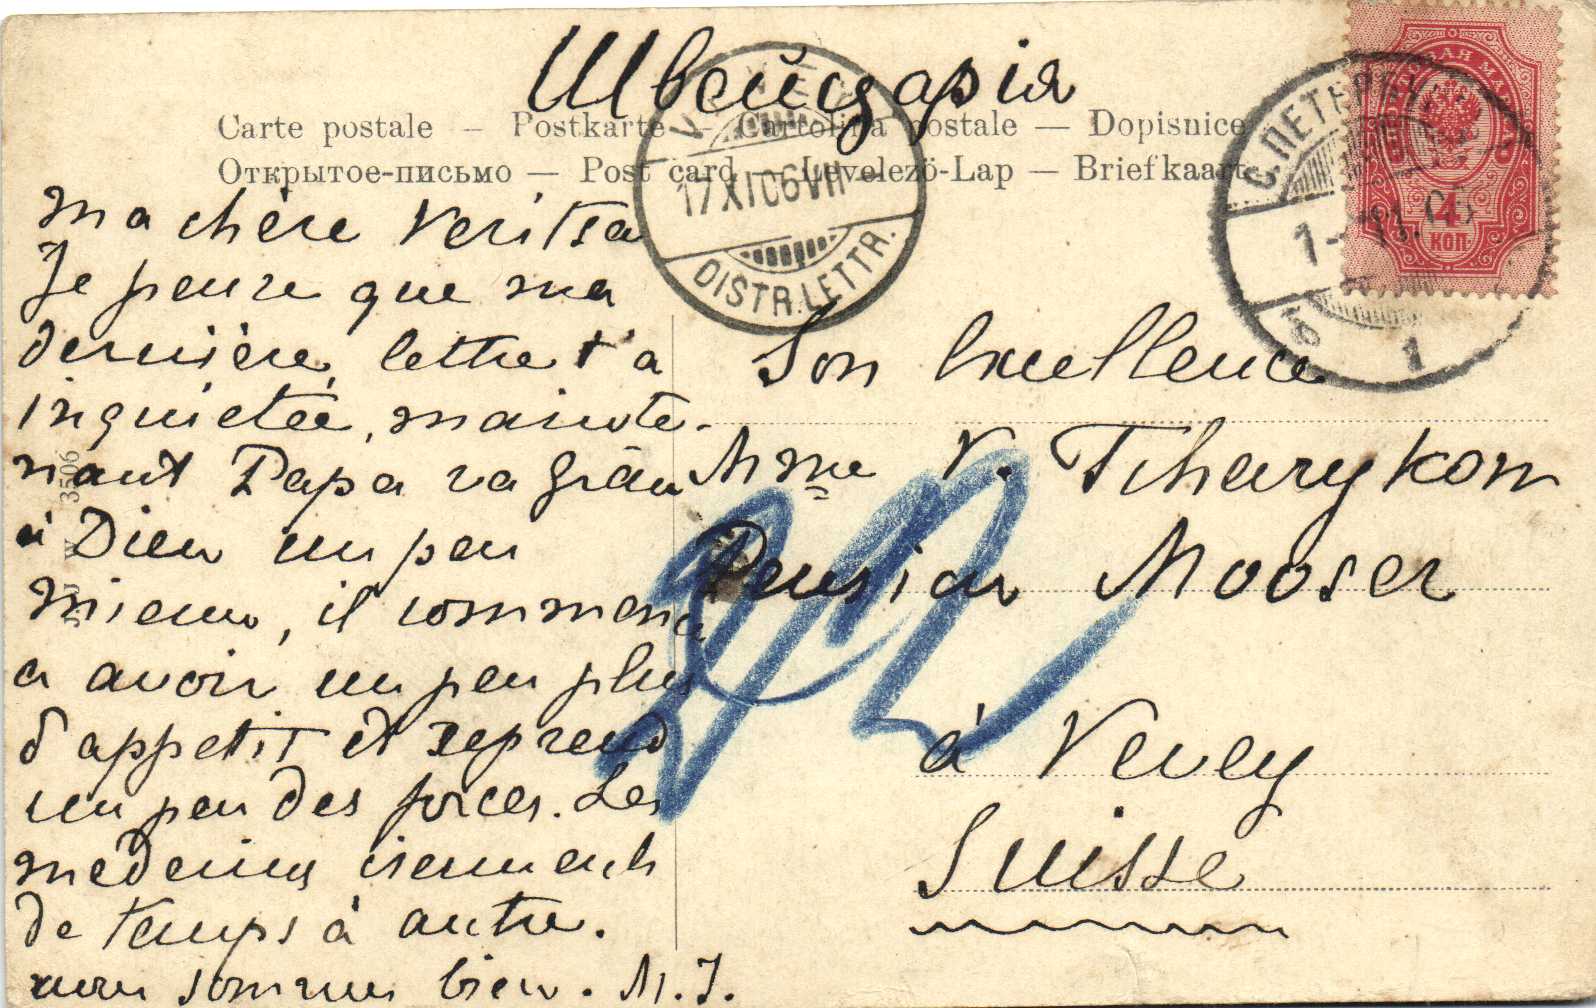 Швейцарія
Carte postale – Postkarte – Cartolina postale — Dopisnice
Открытое-письмо — Post card — Levelezö-Lap — Briefkaart
ma chère Veritsa
Je pense que ma
dernière lettre t'a
inquietée, mainte-
nant Papa va grâce
à Dieu un peu
mieux, il commence
a avoir un peu plus
d'appetit et reprend
un peu des forces. Les
medecins viennent
de temps à autre.
nous sommes bien. M.J.
Son Excellence
Mme V. Tcharykow
Pension Mooser
à Vevey
Suisse
VEVEY
17 XI 06 VII
DISTR. LETTR.
С.ПЕТЕРБУРГ
1-11.06
1
4
КОП.
35506